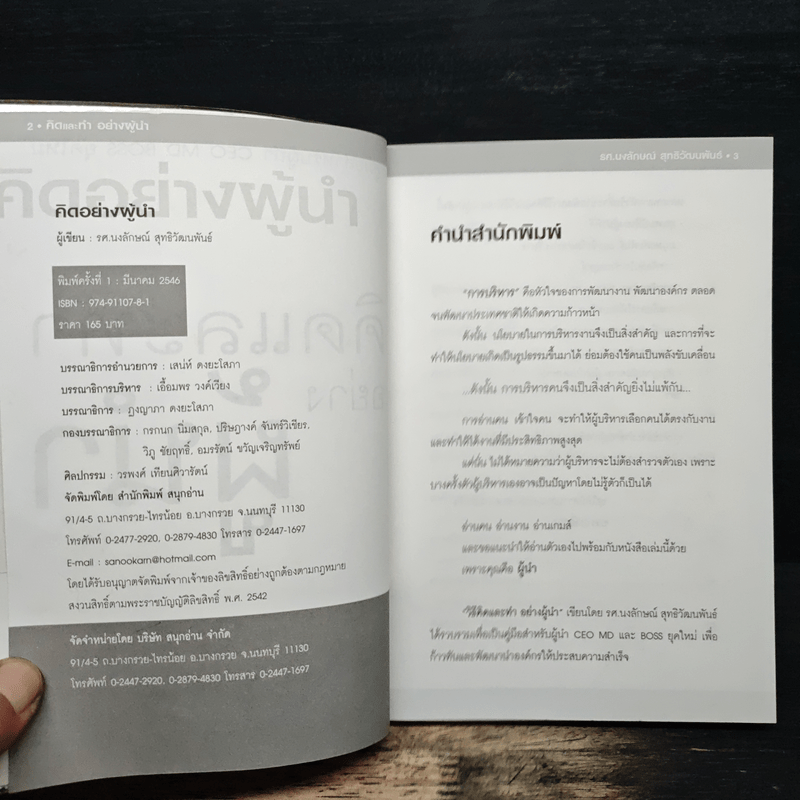 2 • คิดและทำ อย่างผู้นำ
คิดอย่างผู้นำ
ผู้เขียน : รศ.นงลักษณ์ สุทธิวัฒนพันธ์
พิมพ์ครั้งที่ 1 : มีนาคม 2546
ISBN : 974-91107-8-1
ราคา 165 บาท
บรรณาธิการอำนวยการ : เสน่ห์ ดงยะโสภา
บรรณาธิการบริหาร : เอื้อมพร วงค์เวียง
บรรณาธิการ : ภฺงญาภา ดงยะโสภา
กองบรรณาธิการ : กรกนก นิ่มสกุล, ปริษฎางค์ จันทร์วิเชียร,
วิภู ชัยฤทธิ์, อมรรัตน์ ขวัญเจริญทรัพย์
ศิลปกรรม : วรพงศ์ เทียนศิวารัตน์
จัดพิมพ์โดย สำนักพิมพ์ สนุกอ่าน
91/4-5 ถ.บางกรวย-ไทรน้อย อ.บางกรวย จ.นนทบุรี 11130
โทรศัพท์ 0-2477-2920, 0-2879-4830 โทรสาร 0-2447-1697
E-mail : sanookarn@hotmail.com
โดยได้รับอนุญาตจัดพิมพ์จากเจ้าของลิขสิทธิ์อย่างถูกต้องตามกฎหมาย
สงวนสิทธิ์ตามพระราชบัญญัติลิขสิทธิ์ พ.ศ. 2542
จัดจำหน่ายโดย บริษัท สนุกอ่าน จำกัด
91/4-5 ถ.บางกรวย-ไทรน้อย อ.บางกรวย จ.นนทบุรี 11130
โทรศัพท์ 0-2447-2920, 0-2879-4830 โทรสาร 0-2447-1697
รศ.นงลักษณ์ สุทธิวัฒนพันธ์ • 3
คำนำสำนักพิมพ์
"การบริหาร" คือหัวใจของการพัฒนางาน พัฒนาองค์กร ตลอด
จนพัฒนาประเทศชาติให้เกิดความก้าวหน้า
ดังนั้น นโยบายในการบริหารงานจึงเป็นสิ่งสำคัญ และการที่จะ
ทำให้นโยบายเกิดเป็นรูปธรรมขึ้นมาได้ ย่อมต้องใช้คนเป็นพลังขับเคลื่อน
...ดังนั้น การบริหารคนจึงเป็นสิ่งสำคัญยิ่งไม่แพ้กัน...
การอ่านคน เข้าใจคน จะทำให้ผู้บริหารเลือกคนได้ตรงกับงาน
และทำให้ได้งานที่มีประสิทธิภาพสูงสุด
แต่นั่น ไม่ได้หมายความว่าผู้บริหารจะไม่ต้องสำรวจตัวเอง เพราะ
บางครั้งตัวผู้บริหารเองอาจเป็นปัญหาโดยไม่รู้ตัวก็เป็นได้
อ่านคน อ่านงาน อ่านเกมส์
และขอแนะนำให้อ่านตัวเองไปพร้อมกับหนังสือเล่มนี้ด้วย
เพราะคุณคือ ผู้นำ
"วิธีคิดและทำ อย่างผู้นำ" เขียนโดย รศ.นงลักษณ์ สุทธิวัฒนพันธ์
ได้รวบรวมเพื่อเป็นคู่มือสำหรับผู้นำ CEO MD และ BOSS ยุคใหม่ เพื่อ
ก้าวทันและพัฒนานำองค์กรให้ประสบความสำเร็จ